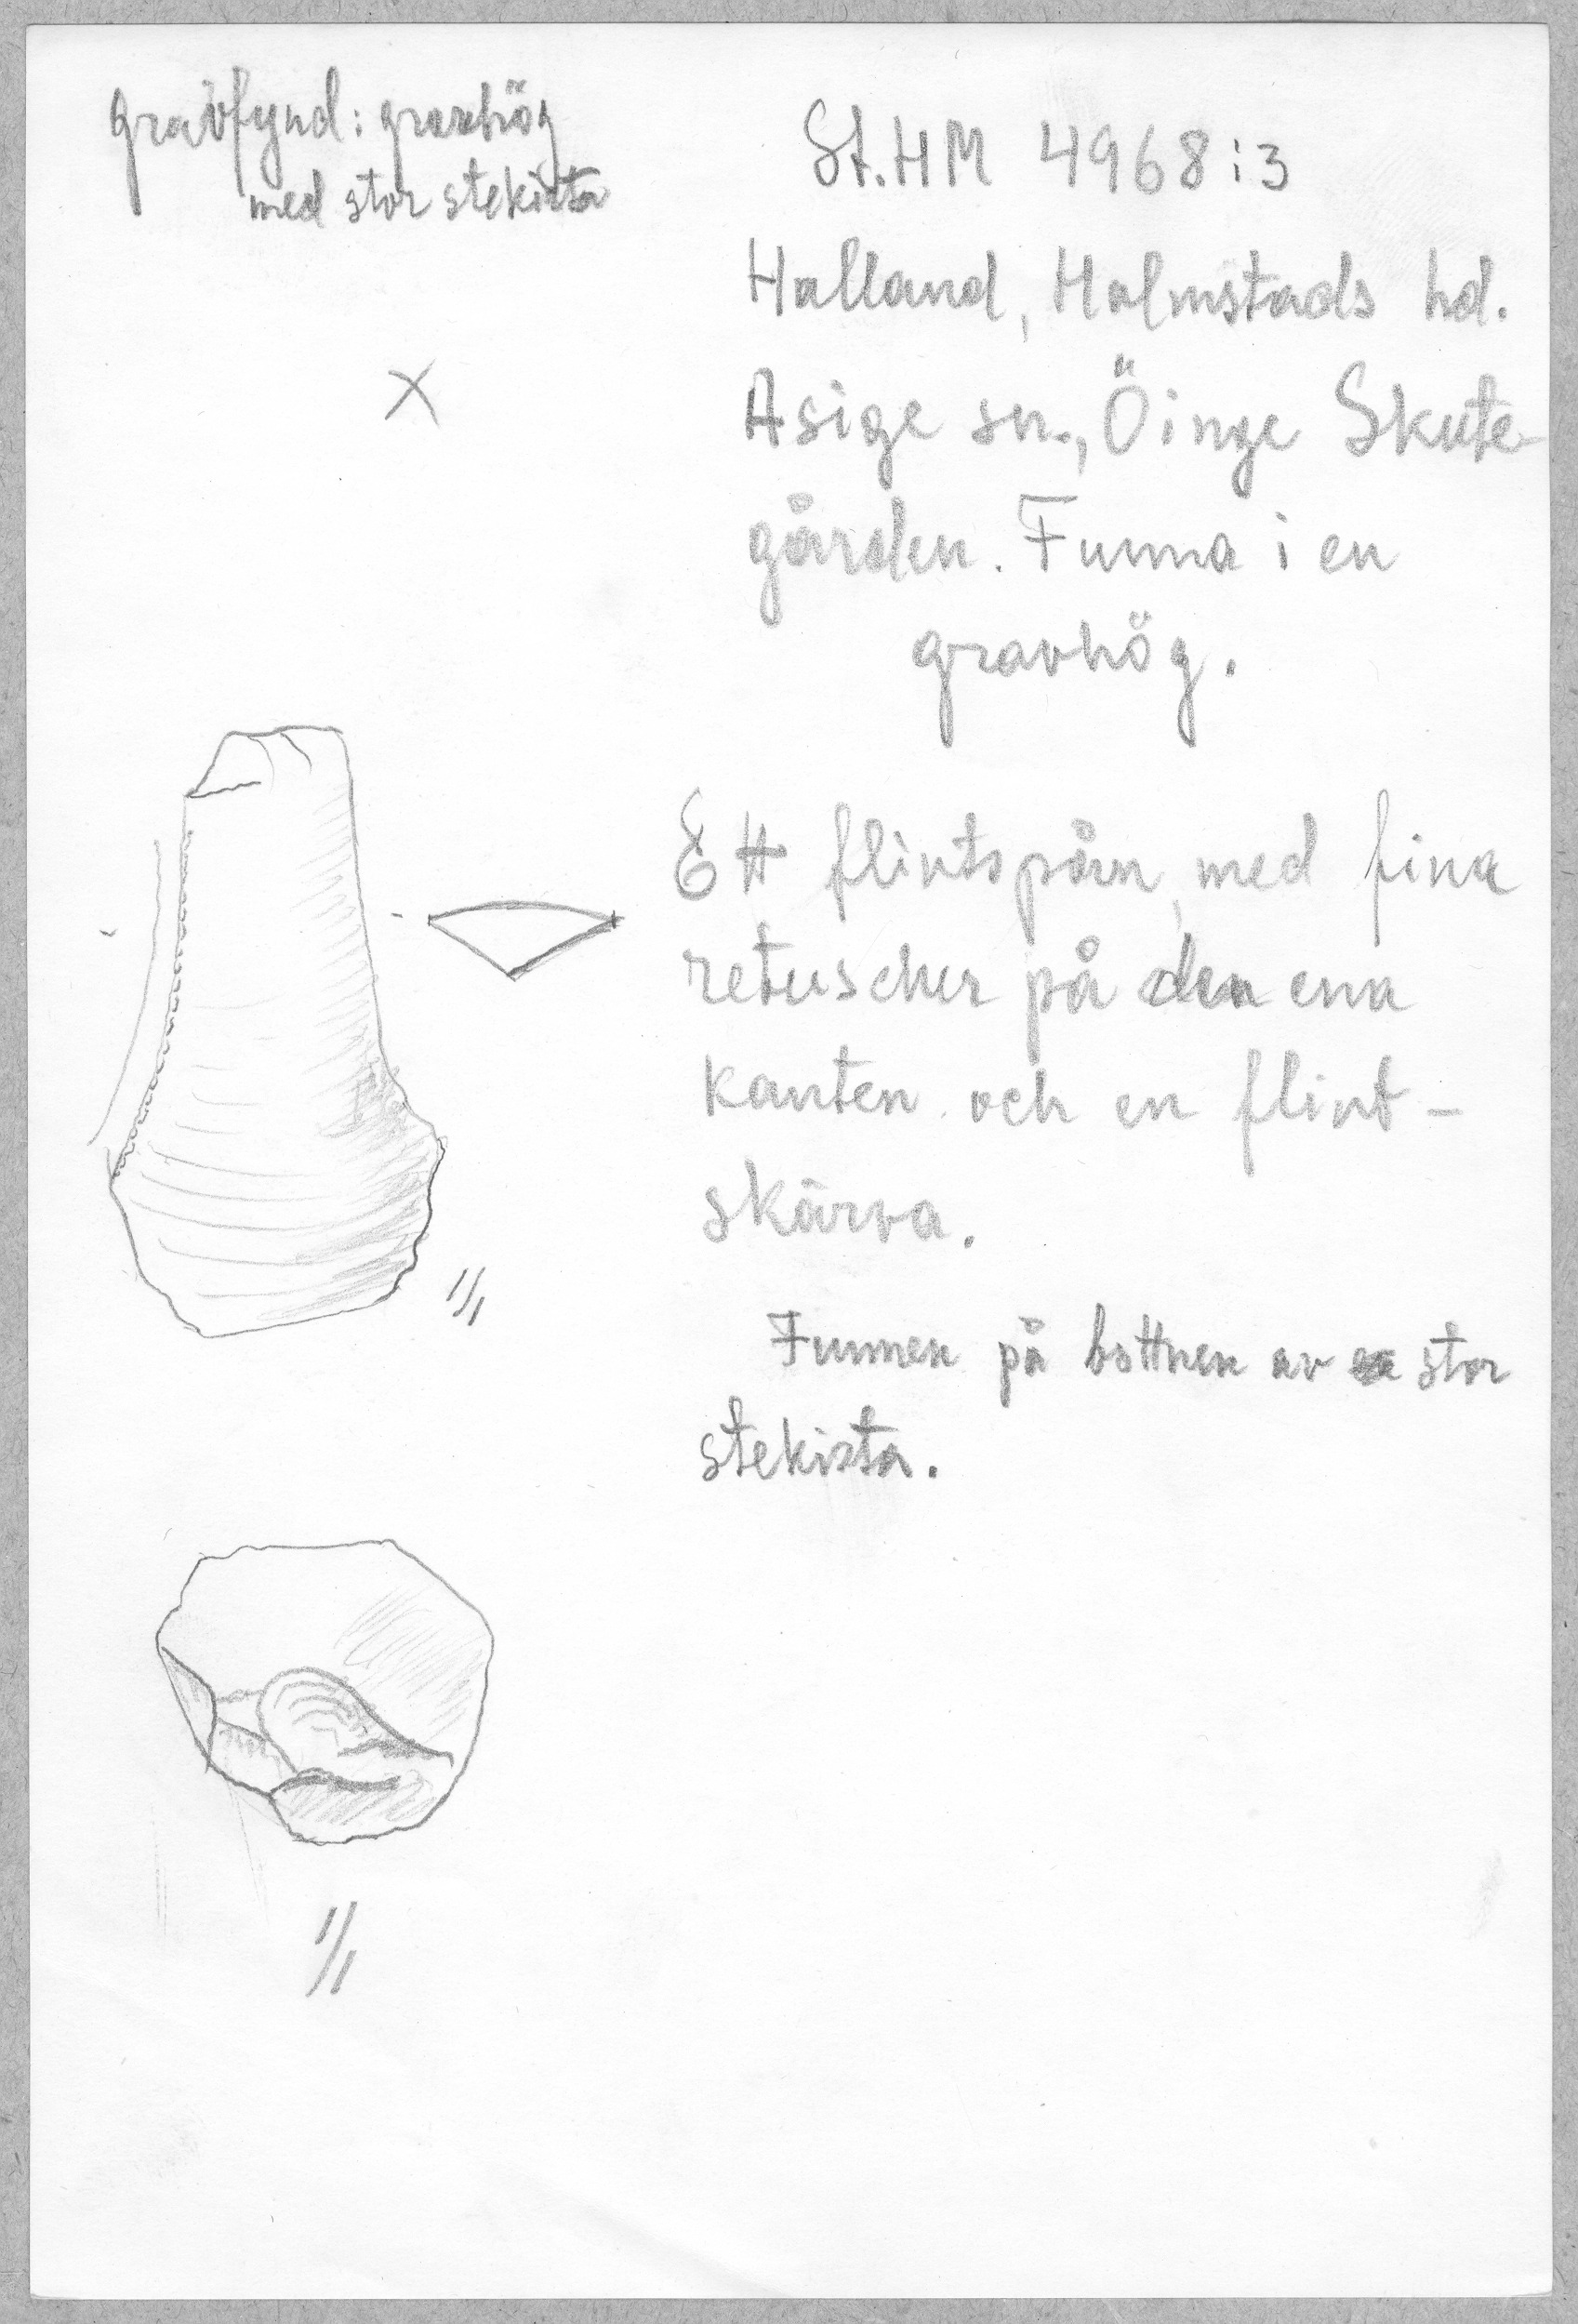 gravfynd: gravhög
med stor stekista
St.HM 4968:3
Halland, Halmstads hd.
X
Asige sn., Öinge Skute-
gården. Funna i en
gravhög.
Ett flintspån, med fina
retuscher på den ena
kanten och en flint-
skärva.
1/1
Funnen på bottnen av stor
stekista.
1/1